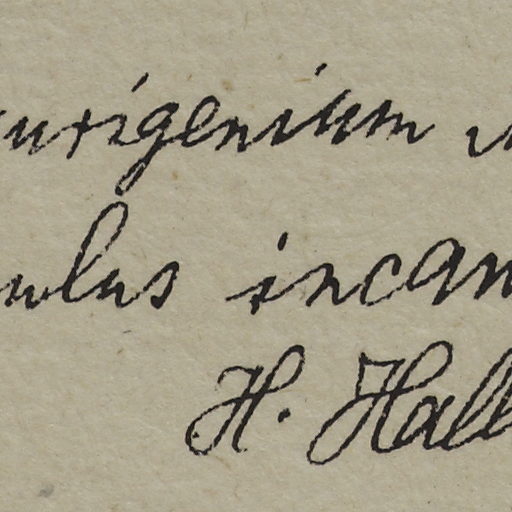 urigenium
ulus incan
H. Hall